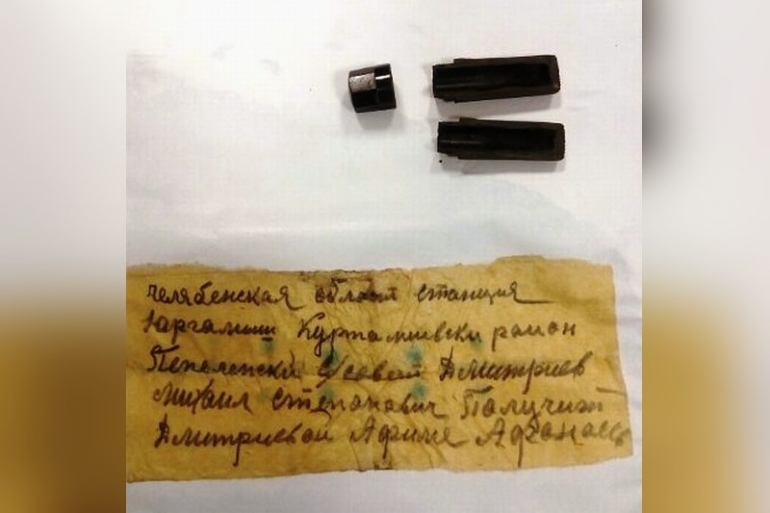 Челябенская област станция
Юргамиш Куртамшевски район
Пепеленски Дмитриев
Михаил Степанович Получит
Дмитриевой Афиме Афанаев